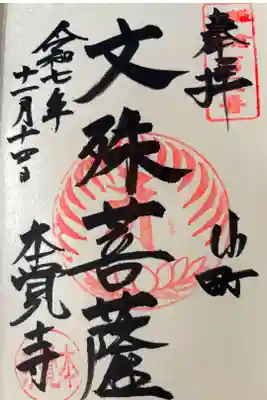 奉拝
小町
文殊菩薩
令和七年
十一月十四日
本覚寺